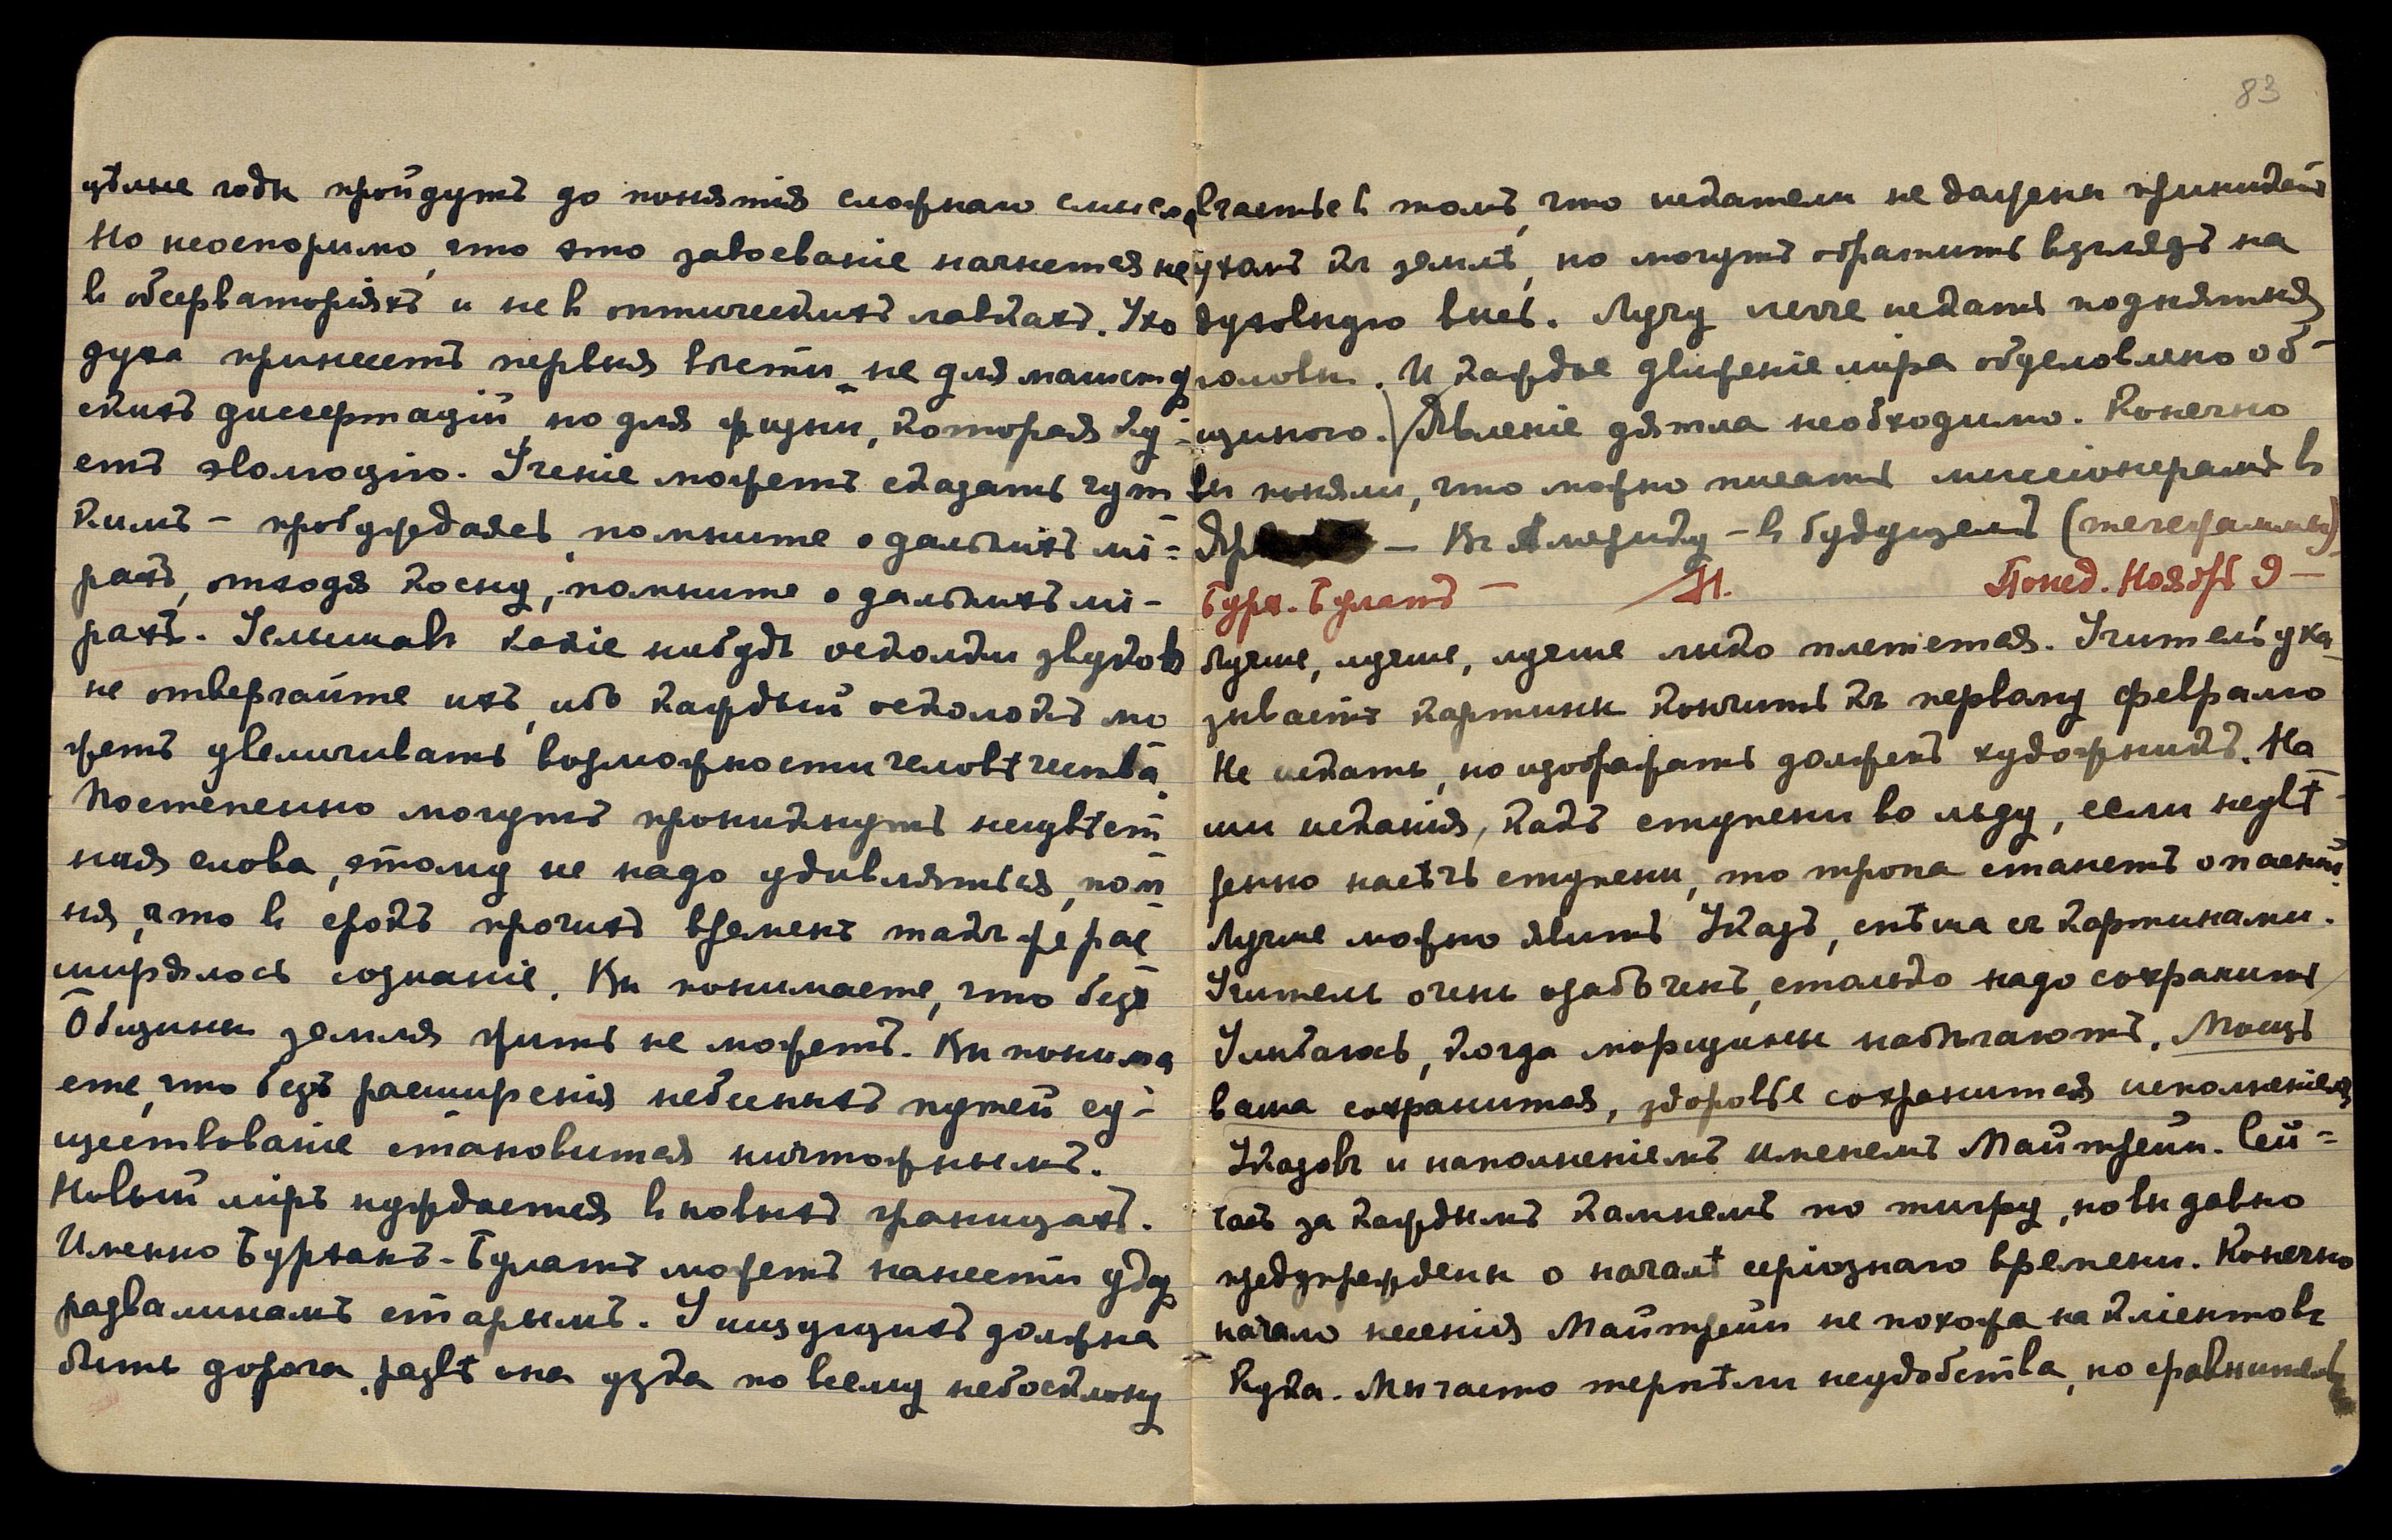 цѣлые годы пройдутъ до понятія сложнаго смысла
Но неоспоримо, что это завоеваніе начнется не
въ обсерваторіяхъ и не въ оптическихъ лавкахъ. Ухо
духа принесетъ первыя вѣсти не для магистр
скихъ диссертацій но для жизни, которая ку-
етъ эволюцію. Ученіе можетъ сказать чут
кимъ – пробуждаясь, помните о дальнихъ мі=
рахъ, отходя ко сну, помните о дальнихъ мі-
рахъ. Услышавъ какіе нибудь осколки звуковъ
не отвергайте ихъ, ибо каждый осколокъ мо
жетъ увеличивать возможности человѣчества.
Постепенно могутъ проникнуть неизвѣст
ныя слова, этому не надо удивляться, пом
ня, что въ срокъ прочихъ временъ такъ же рас
ширялось сознаніе. Вы понимаете, что безъ
Общины земля жить не можетъ. Вы понима
ете, что безъ расширенія небесныхъ путей су-
ществованіе становится ничтожнымъ.
Новый міръ нуждается въ новыхъ границахъ.
Именно Бурханъ-Булатъ можетъ нанести удар
развалинамъ старымъ. У ищущихъ должна
быть дорога, развѣ она узка по всему небосклону
83
Счастье въ томъ, что искатели не должны приникать
ухомъ къ землѣ, но могутъ обратить взглядъ на
духовную высь. Лучу легче искать поднятыя
головы. И каждое движеніе міра обусловлено об-
щиною. Явленіе дятла необходимо. Конечно
вы поняли, что можно писать миссіонерамъ въ
– Въ Америку – въ будущемъ (телеграммы)
Бурх. Булатъ – Н. Понед. Ноябрь 9 –
Лучше, лучше, лучше лыко плетется. Учитель ука-
зываетъ картины кончить къ первому февралю
Не искать, но изображать долженъ художникъ. На
ши исканія, какъ ступени во льду, если неувѣ-
ренно насѣчь ступени, то тропа станетъ опасной.
Лучше можно явить Указъ, спѣша съ картинами.
Учитель очень озабоченъ, столько надо сохранить
Улыбаюсь, когда морщины набѣгаютъ. Мощь
ваша сохранится, здоровье сохранится исполненіемъ
Указовъ и наполненіемъ именемъ Майтрейи. Сей=
часъ за каждымъ камнемъ по тигру, но вы давно
предупреждены о началѣ серіознаго времени. Конечно
начало несенія Майтрейи не похожа на кліентовъ
Кука. Мы часто терпѣли неудобства, но сравнительно